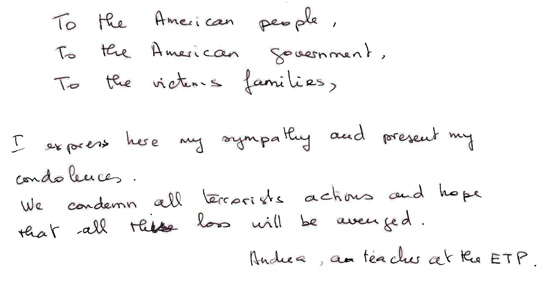 To the American people,
To the American government,
To the victims families,
I express here my sympathy and present my
condolences.
We condemn all terrorists actions and hope
that all this loss will be avenged.
Andrea, an teacher at the ETP.